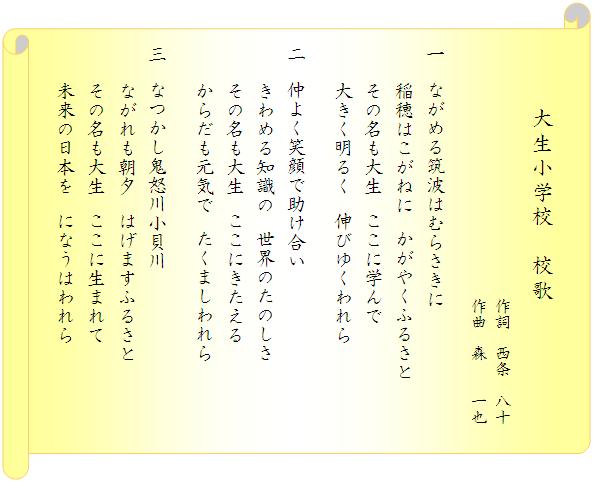 大生小学校　校歌
作詞　西条　八十
作曲　森　一也
一　ながめる筑波はむらさきに
稲穂はこがねに　かがやくふるさと
その名も大生　ここに学んで
大きく明るく　伸びゆくわれら
二　仲よく笑顔で助け合い
きわめる知識の　世界のたのしさ
その名も大生　ここにきたえる
からだも元気で　たくましわれら
三　なつかし鬼怒川小貝川
ながれも朝夕　はげますふるさと
その名も大生　ここに生まれて
未来の日本を　になうはわれら